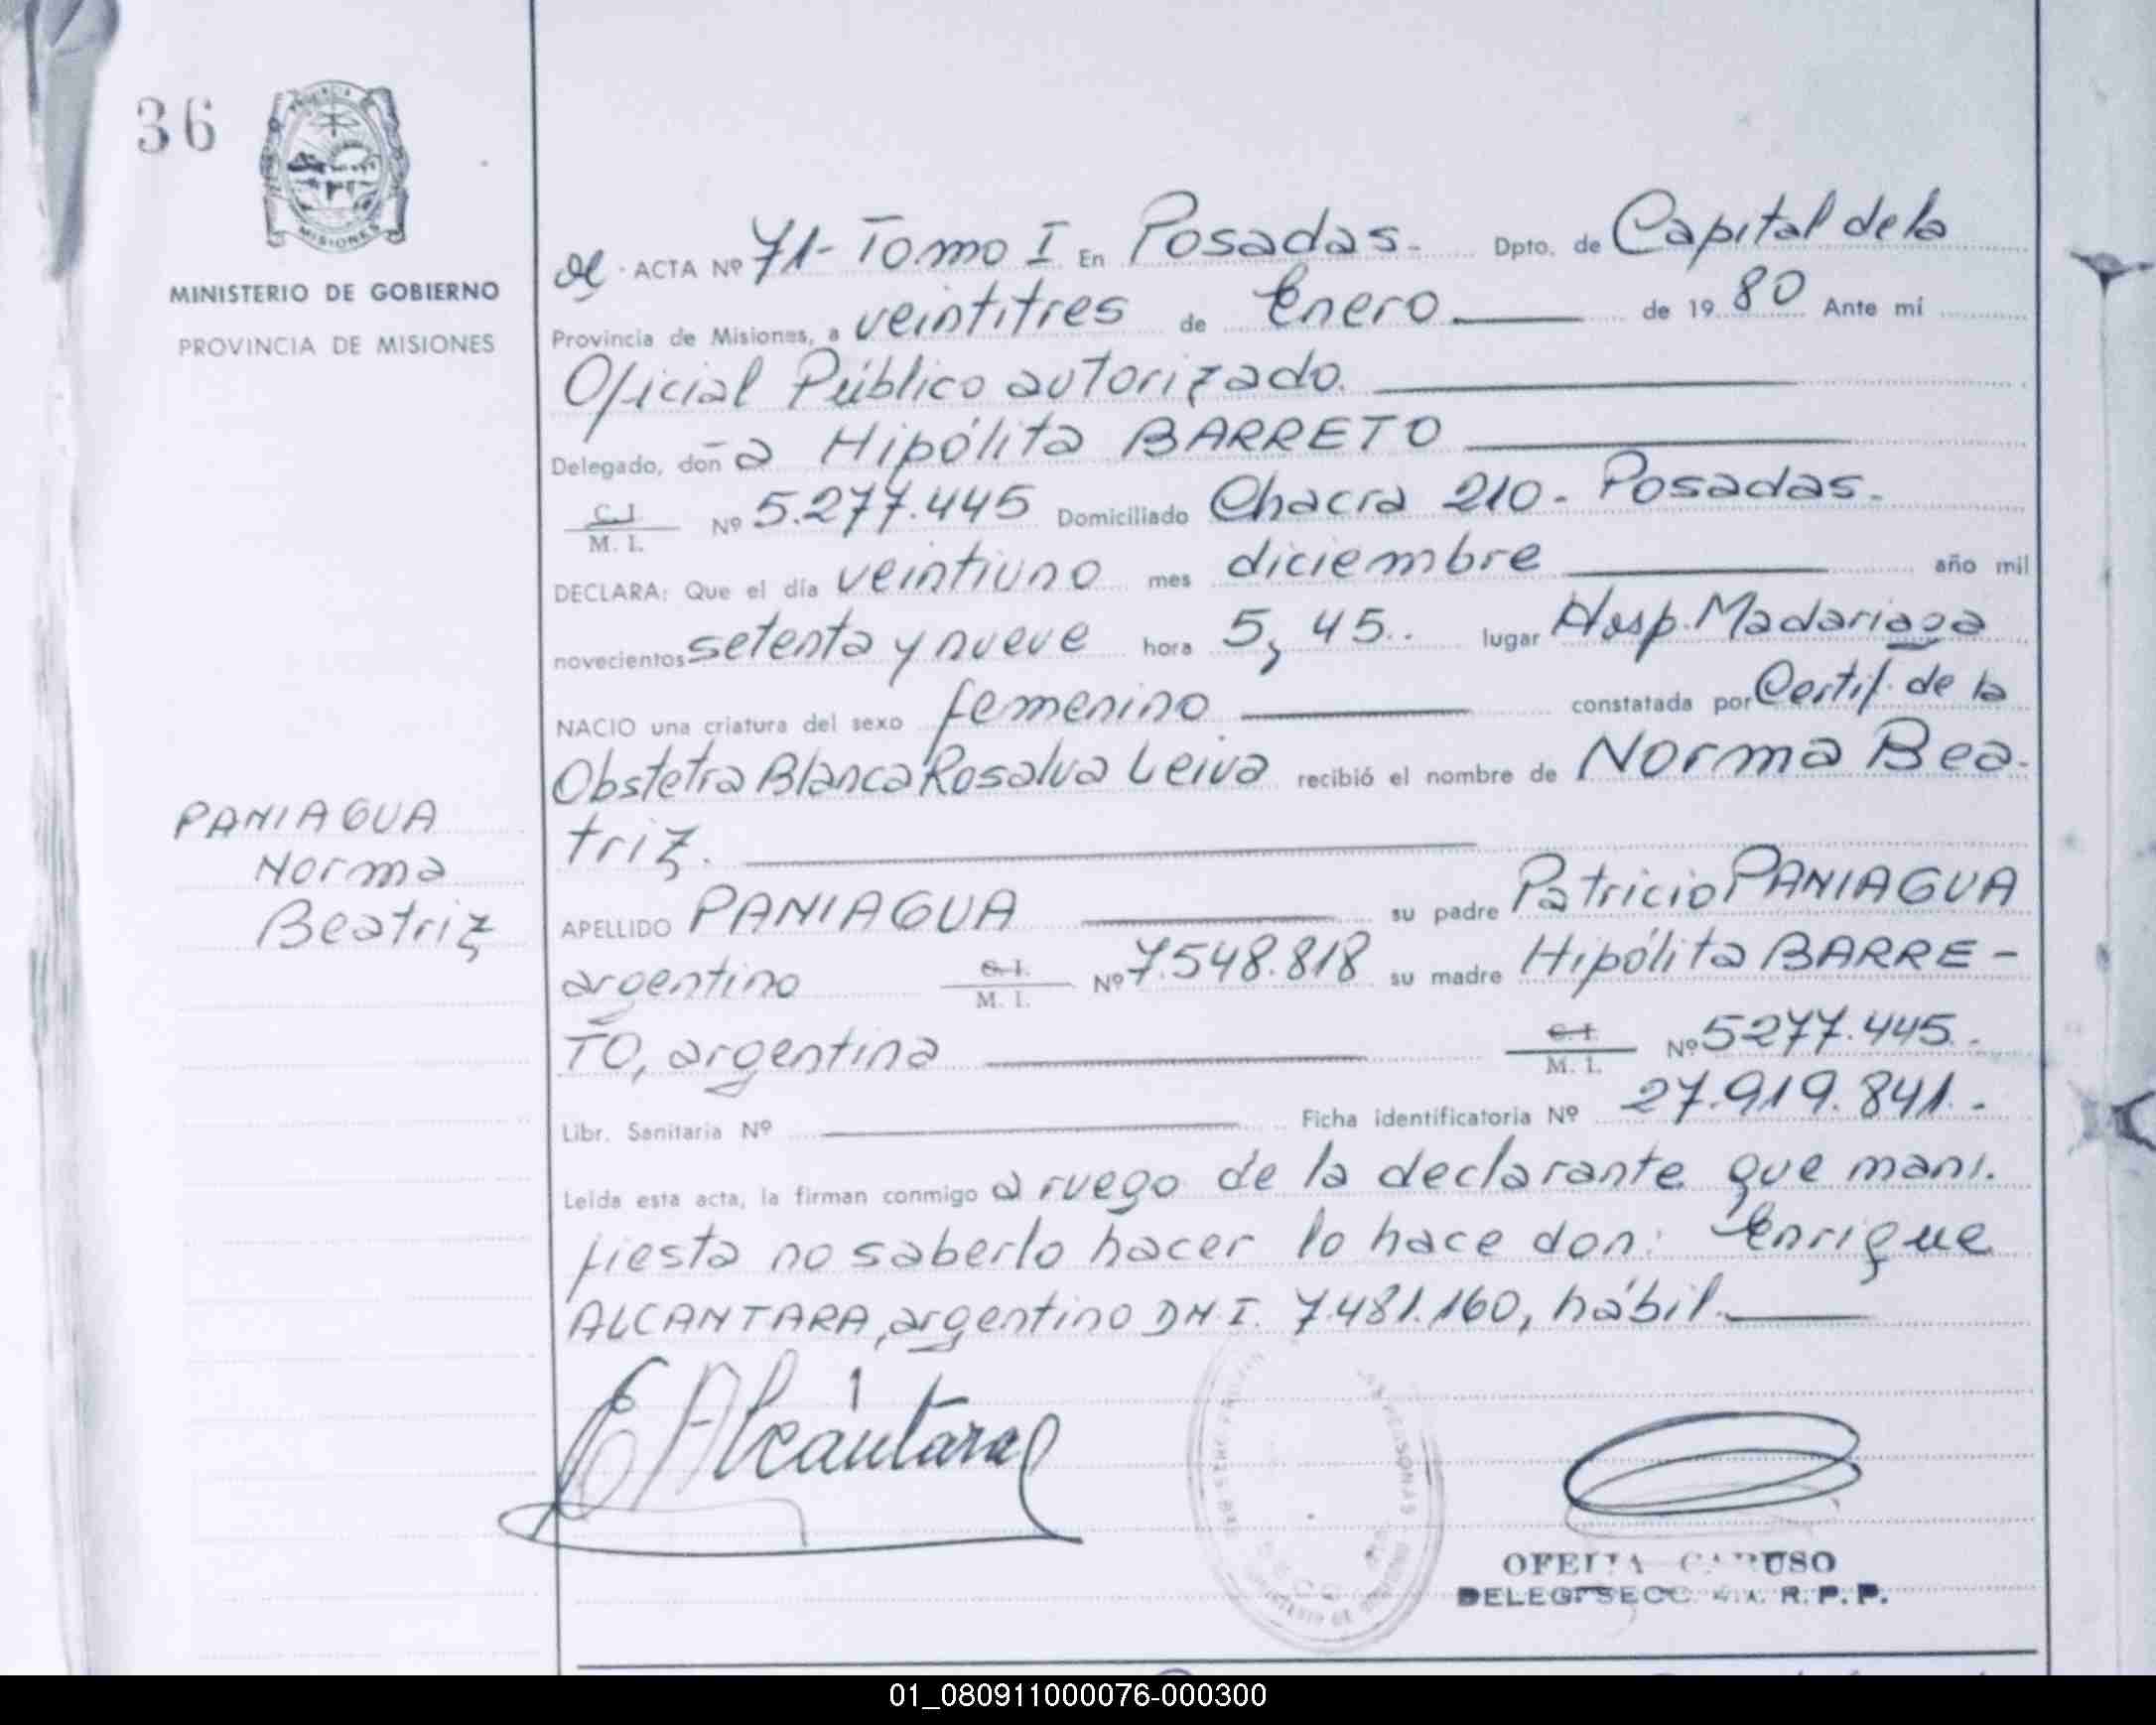 36
MISIONES
MINISTERIO DE GOBIERNO
PROVINCIA DE MISIONES
PANIAGUA
Norma
Beatriz
ACTA Nº 71- Tomo I En Posadas.- Dpto. de Capital de la
Provincia de Misiones, a veintitres de Enero de 1980 Ante mí
Oficial Público autorizado.
Delegado, doña Hipólita BARRETO
C.I. M. I. Nº 5.277.445 Domiciliado Chacra 210.- Posadas.-
DECLARA: Que el día veintiuno mes diciembre año mil
novecientos setenta y nueve hora 5,45.. lugar Hosp. Madariaga
NACIO una criatura del sexo femenino constatada por Certif. de la
Obstetra Blanca Rosalva Leiva recibió el nombre de Norma Bea-
triz.
APELLIDO PANIAGUA su padre Patricio PANIAGUA
argentino C.I. M. I. Nº 7.548.818 su madre Hipólita BARRE-
TO, argentina C.I. M. I. Nº 5277.445.-
Libr. Sanitaria Nº Ficha identificatoria Nº 27.919.841.-
Leída esta acta, la firman conmigo a ruego de la declarante que mani-
fiesta no saberlo hacer lo hace don: Enrique
ALCANTARA, argentino DNI. 7.481.160, hábil.-
E Alcántara
USO
DELEG. SECC. R. P. P.
01_080911000076-000300